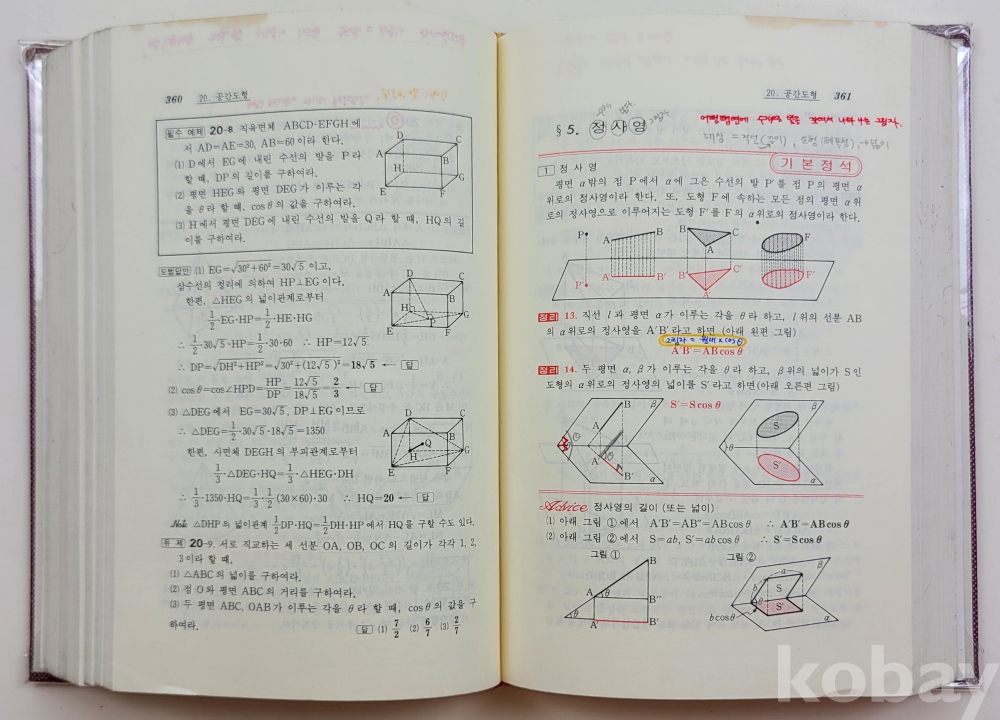 360 20. 공간도형
필수 예제 20-8 직육면체 ABCD-EFGH에
서 AD=AE=30, AB=60이라 한다.
(1) D에서 EG에 내린 수선의 발을 P라
할 때, DP의 길이를 구하여라.
(2) 평면 HEG와 평면 DEG가 이루는 각
을 θ라 할 때, cosθ의 값을 구하여라.
(3) H에서 평면 DEG에 내린 수선의 발을 Q라 할 때, HQ의 길
이를 구하여라.
D C A B H G E F
모범답안 (1) EG=√(30²+60²)=30√5 이고,
삼수선의 정리에 의하여 HP⊥EG이다.
한편, △HEG의 넓이관계로부터
1/2·EG·HP=1/2·HE·HG
∴ 1/2·30√5·HP=1/2·30·60 ∴ HP=12√5
∴ DP=√(DH²+HP²)=√(30²+(12√5)²)=18√5 ← 답
D C A B H G E P F
(2) cosθ=cos∠HPD=HP/DP=12√5/18√5=2/3 ← 답
(3) △DEG에서 EG=30√5, DP⊥EG이므로
∴ △DEG=1/2·30√5·18√5=1350
한편, 사면체 DEGH의 부피관계로부터
1/3·△DEG·HQ=1/3·△HEG·DH
∴ 1/3·1350·HQ=1/3·1/2(30×60)·30 ∴ HQ=20 ← 답
D C A B Q H G E F
Note △DHP의 넓이관계 1/2DP·HQ=1/2DH·HP에서 HQ를 구할 수도 있다.
유제 20-9. 서로 직교하는 세 선분 OA, OB, OC의 길이가 각각 1, 2,
3이라 할 때,
(1) △ABC의 넓이를 구하여라.
(2) 점 O와 평면 ABC의 거리를 구하여라.
(3) 두 평면 ABC, OAB가 이루는 각을 θ라 할 때, cosθ의 값을 구
하여라.
답 (1) 7/2 (2) 6/7 (3) 2/7
20. 공간도형 361
§5. 정사영
그림자.
대상 = 직선(길이), 도형 → 넓이
기본정석
1 정사영
평면 α밖의 점 P에서 α에 그은 수선의 발 P′를 점 P의 평면 α
위로의 정사영이라 한다. 또, 도형 F에 속하는 모든 점의 평면 α위
로의 정사영으로 이루어지는 도형 F′를 F의 α위로의 정사영이라 한다.
P A B B C A F
P′ A′ B′ B′ C′ A′ F′
정리 13. 직선 l과 평면 α가 이루는 각을 θ라 하고, l위의 선분 AB
의 α위로의 정사영을 A′B′라고 하면 (아래 왼편 그림)
그림자 = 원래 × cosθ
A′B′=ABcosθ
정리 14. 두 평면 α, β가 이루는 각을 θ라 하고, β위의 넓이가 S인
도형의 α위로의 정사영의 넓이를 S′라고 하면(아래 오른편 그림)
S′=Scosθ
B β A A′ B′ α
β S θ S′ α
Advice 정사영의 길이 (또는 넓이)
(1) 아래 그림 ①에서 A′B′=AB″=ABcosθ ∴ A′B′=ABcosθ
(2) 아래 그림 ②에서 S=ab, S′=abcosθ ∴ S′=Scosθ
그림 ① 그림 ②
B A θ B″ θ A′ B′
a β b S θ S′ bcosθ α
kobay